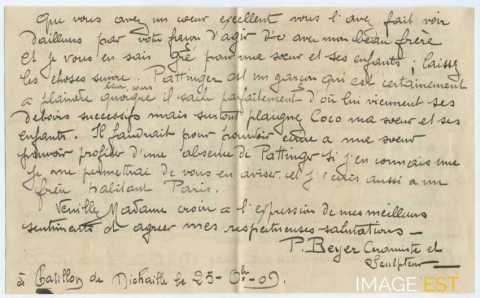 Que vous avez un coeur excellent vous l'avez fait voir
d'ailleurs par votre façon d'agir avec mon beau frère
Et je vous en sais gré pour ma soeur et ses enfants; laissez
les choses suivre. Pattinger est un garçon qui est certainement
a plaindre quoique il sache parfaitement d'où lui viennent ses
deboirs successifs mais surtout plaignez Coco ma soeur et ses
enfants. Il faudrait pour pouvoir écrire a ma soeur
pouvoir profiter d'une absence de Pattinger si j'en connais une
Je me permettrai de vous en aviser et j'écris aussi a un
frère habitant Paris.
Veuillez Madame croire a l'expression de mes meilleurs
sentiments et agreer mes respectueuses salutations—
P. Beyer Ceramiste et
Sculpteur—
à Chatillon de Michaille le 25-8bre-09.
IMAGEEST.